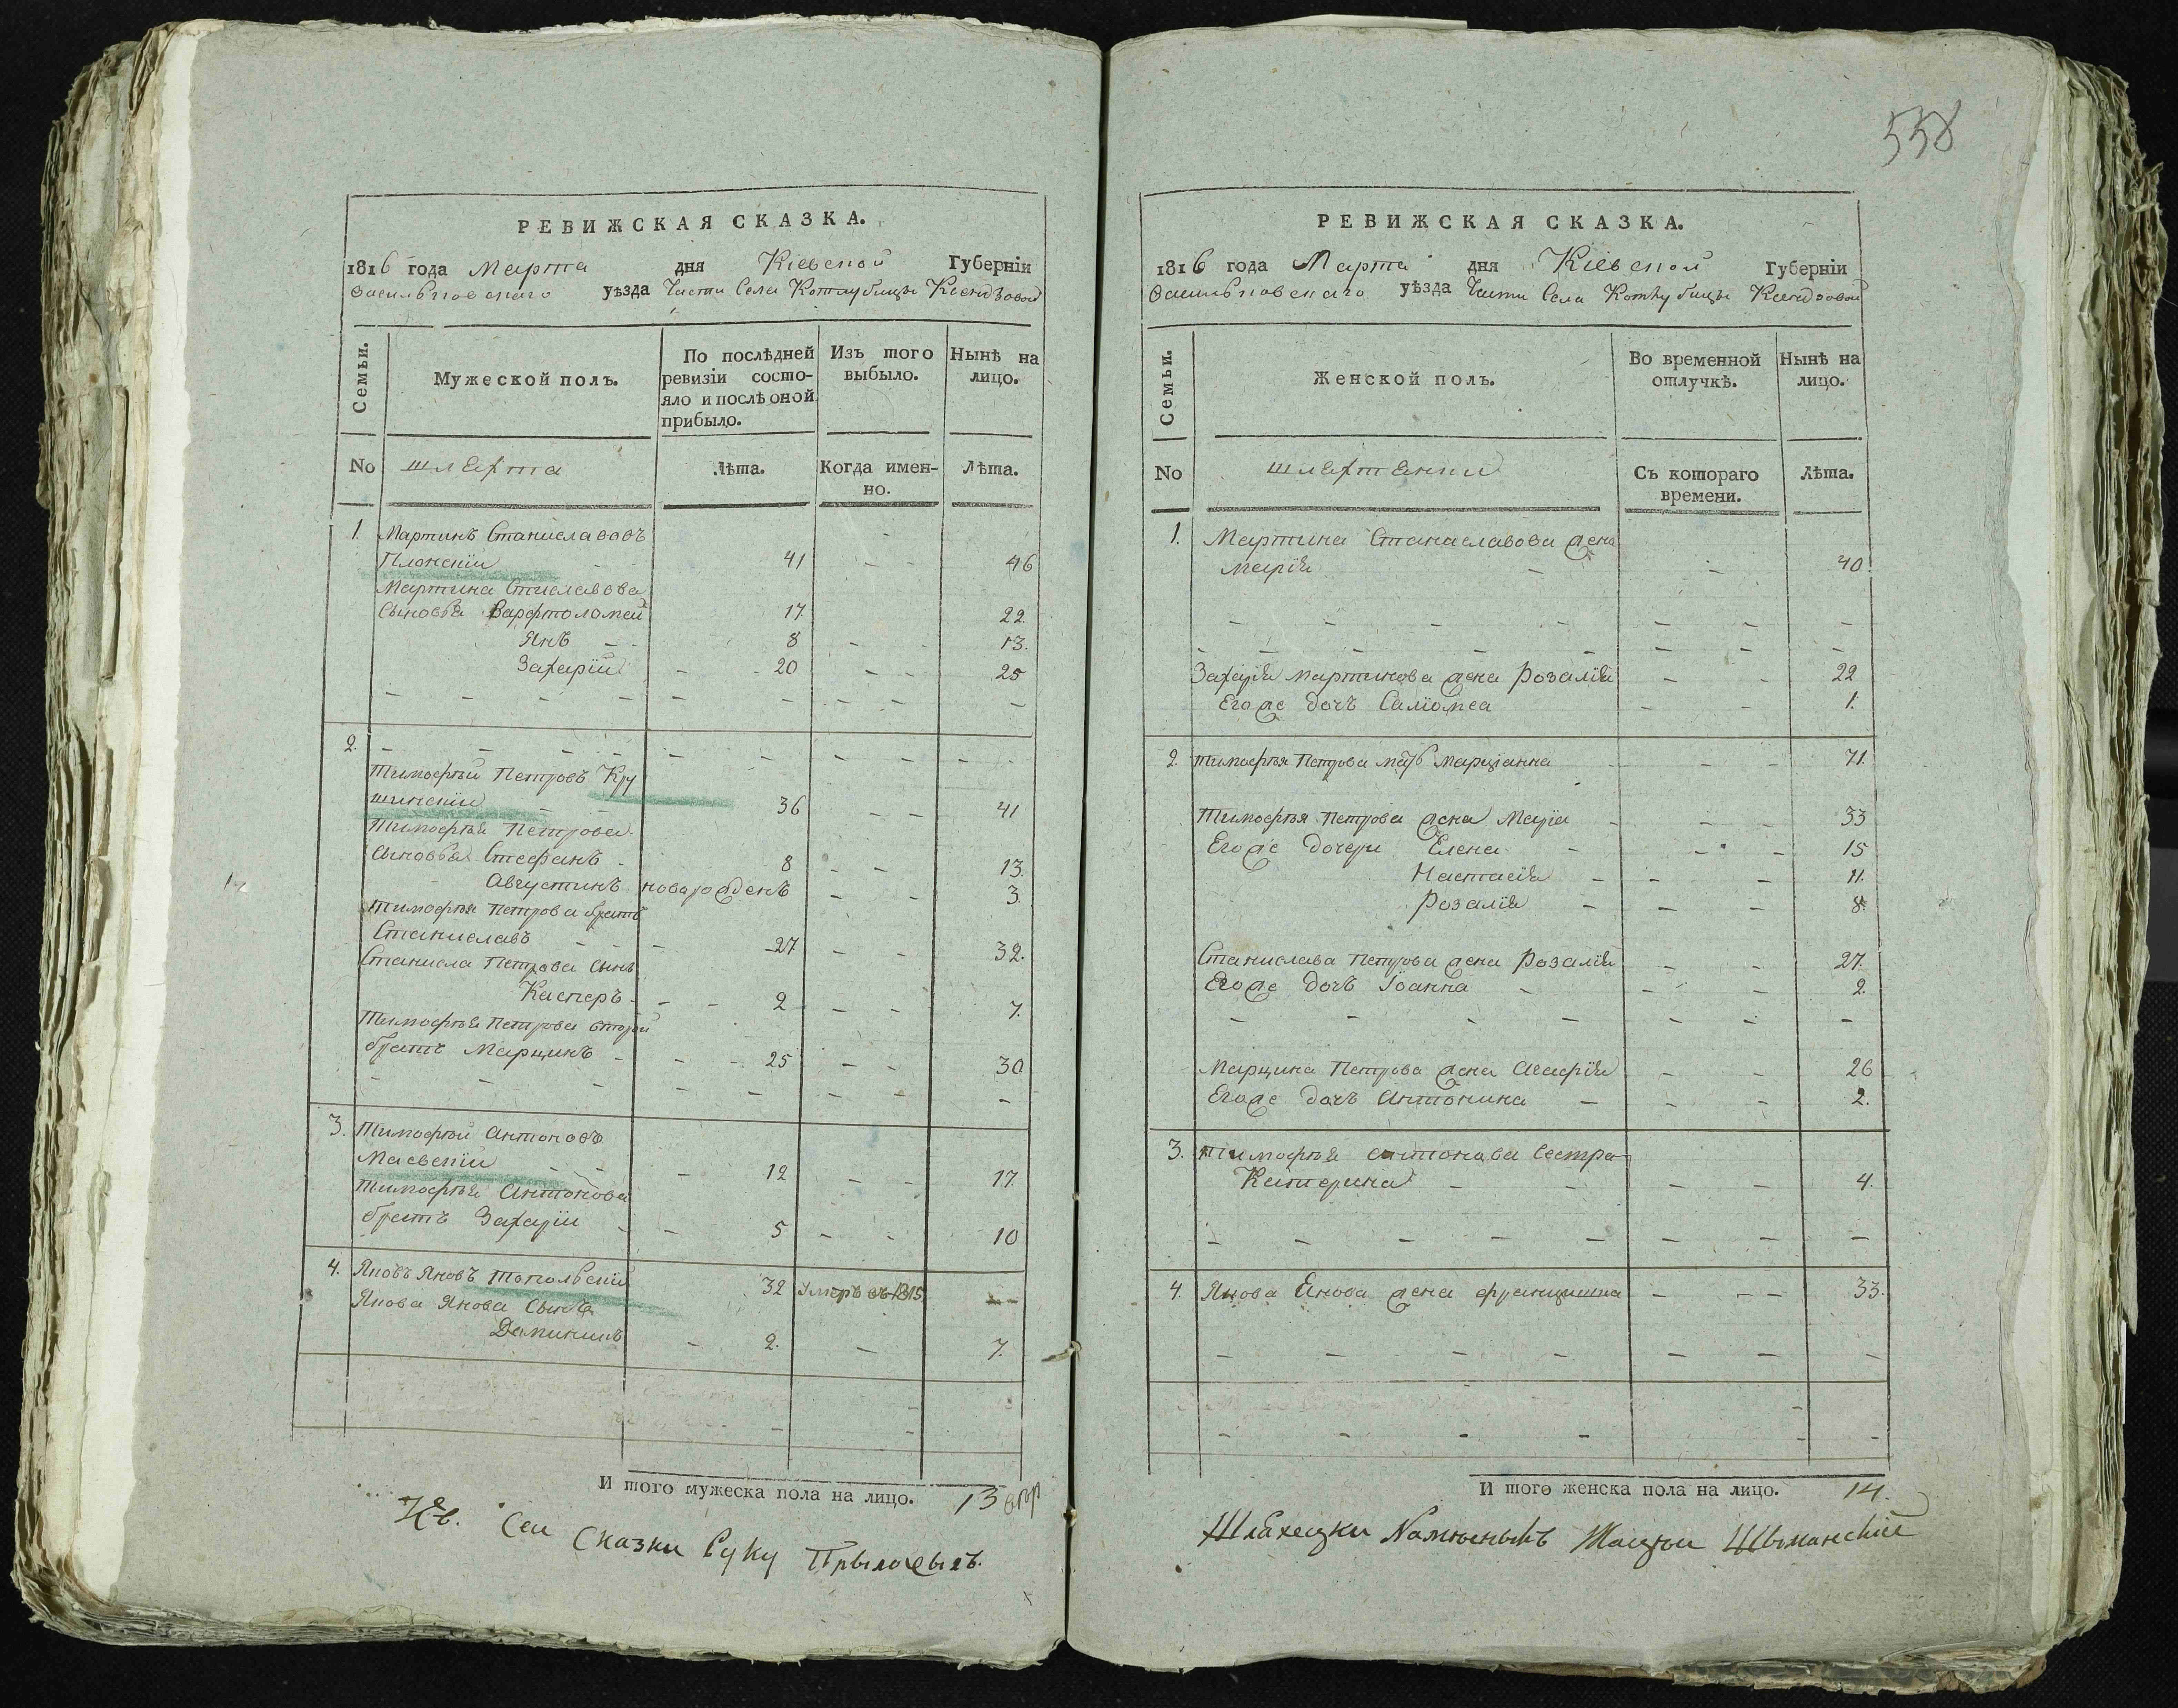 РЕВИЖСКАЯ СКАЗКА.
1816 года Марта дня Кіевской Губерніи
Васильковскаго уѣзда Части Села Котлубицы Ксендзовой
Семьи.
Мужеской полъ.
По послѣдней ревизіи состояло и послѣ оной прибыло.
Изъ того выбыло.
Нынѣ на лицо.
No шляхта Лѣта. Когда именно. Лѣта.
1. Мартинъ Станиславовъ
Плонскій 41 46
Мартина Стиславова
Сыновья Варфтоломей 17. 22.
Янъ 8 13.
Захарій 20 25
2.
Тимофѣй Петровъ Кру
шинскій 36 41
Тимофѣя Петрова
сыновья Стефанъ 8 13.
Августинъ новарожденъ 3
Тимофѣя Петрова братъ
Станиславъ 27 32.
Станисла Петрова Сынъ
Касперъ 2 7.
Тимофѣя Петрова второй
братъ Марцинъ 25 30
3. Тимофѣй Антоновъ
Маевскій 12 17
Тимофѣя Антонова
братъ Захарій 5 10
4. Яковъ Яновъ Топольскій 32 Умеръ въ 1815
Якова Янова Сынъ
Даминикъ 2. 7.
И того мужеска пола на лицо. 13
Къ. Сей Сказки Руку Прыложылъ.
558
РЕВИЖСКАЯ СКАЗКА.
1816 года Марта дня Кіевской Губерніи
Васильковскаго уѣзда Части Села Котлубицы Ксендзовой
Семьи.
Женской полъ.
Во временной отлучкѣ.
Нынѣ на лицо.
No шляхтянки Съ котораго времени. Лѣта.
1. Мартина Станиславова жена
Марія 40
Захарія Мартинова жена Розалія 22
Егоже дочъ Саліомеа 1.
2. Тимофѣя Петрова мать Марціанна 71.
Тимофѣя Петрова жена Маріа 33
Егоже дочери Елена 15
Настасія 11.
Розалія 8.
Станислава Петрова жена Розалія 27.
Егоже дочъ Іоанна 2.
Марцина Петрова жена Агафія 26
Егоже дочъ Антонина 2.
3. Тимофѣя Антонова Сестра
Катерина 4.
4. Якова Янова жена францишка 33.
И того женска пола на лицо. 14.
Шляхецки